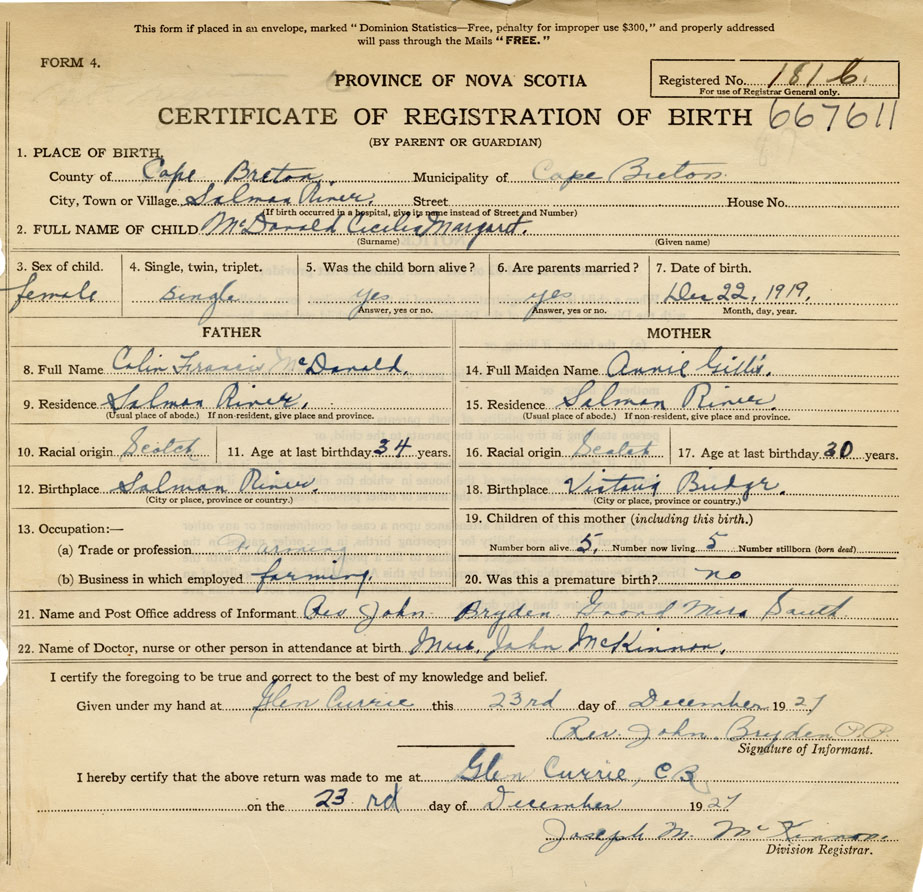 This form if placed in an envelope, marked "Dominion Statistics—Free, penalty for improper use $300," and properly addressed
will pass through the Mails "FREE."
FORM 4.
PROVINCE OF NOVA SCOTIA
Registered No. 1816.
For use of Registrar General only.
CERTIFICATE OF REGISTRATION OF BIRTH 667611
(BY PARENT OR GUARDIAN)
1. PLACE OF BIRTH,
County of Cape Breton, Municipality of Cape Breton.
City, Town or Village Salmon River. Street House No.
(If birth occurred in a hospital, give its name instead of Street and Number)
2. FULL NAME OF CHILD McDonald Cecilia Margaret.
(Surname) (Given name)
3. Sex of child. 4. Single, twin, triplet. 5. Was the child born alive? 6. Are parents married? 7. Date of birth.
female single yes yes Dec 22, 1919.
Answer, yes or no. Answer, yes or no. Month, day, year.
FATHER MOTHER
8. Full Name Colin Francis McDonald. 14. Full Maiden Name Annie Gillis.
9. Residence Salmon River. 15. Residence Salmon River.
(Usual place of abode.) If non-resident, give place and province. (Usual place of abode.) If non-resident, give place and province.
10. Racial origin Scotch 11. Age at last birthday 34 years. 16. Racial origin Scotch 17. Age at last birthday 30 years.
12. Birthplace Salmon River. 18. Birthplace Victoria Bridge.
(City or place, province or country.) (City or place, province or country.)
13. Occupation:— 19. Children of this mother (including this birth.)
(a) Trade or profession Farming Number born alive 5. Number now living 5 Number stillborn (born dead)
(b) Business in which employed farming. 20. Was this a premature birth? no
21. Name and Post Office address of Informant Rev John Bryden Grand Mira South
22. Name of Doctor, nurse or other person in attendance at birth Mrs. John McKinnon.
I certify the foregoing to be true and correct to the best of my knowledge and belief.
Given under my hand at Glen Currie this 23rd day of December 1927
Rev. John Bryden P.P.
Signature of Informant.
I hereby certify that the above return was made to me at Glen Currie, CB
on the 23 rd day of December 1927
Joseph M. McKinnon.
Division Registrar.